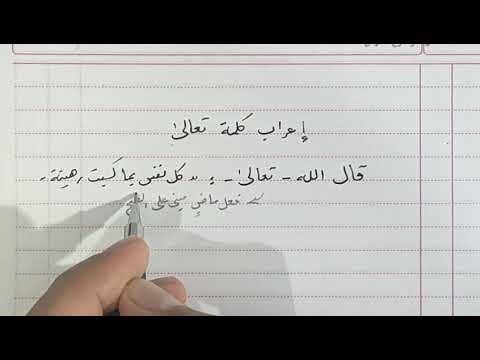 إعراب كلمة تعالىٰ
قال الله - تعالىٰ - : " كل نفس بما كسبت رهينة "
فعل ماضٍ مبني على